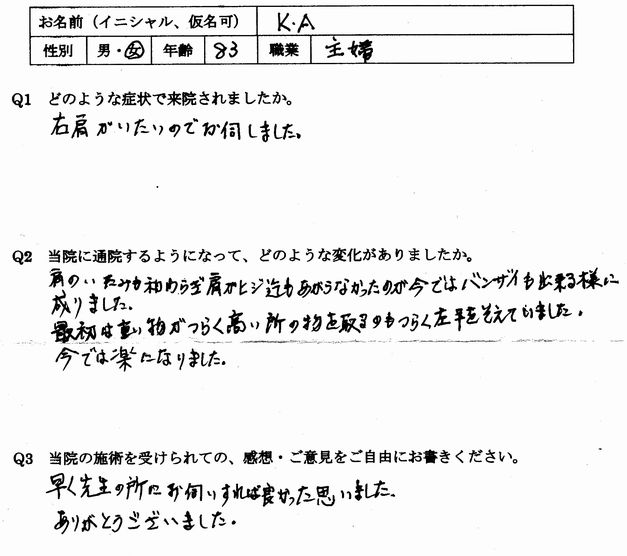 お名前（イニシャル、仮名可） K.A
性別 男・女 年齢 83 職業 主婦
Q1 どのような症状で来院されましたか。
右肩がいたいのでお伺しました。
Q2 当院に通院するようになって、どのような変化がありましたか。
肩のいたみも和わらぎ肩がヒジ迄もあがらなかったのが今ではバンザイも出来る様に
成りました。
最初は重い物がつらく高い所の物を取るのもつらく左手をそえていました。
今では楽になりました。
Q3 当院の施術を受けられての、感想・ご意見をご自由にお書きください。
早く先生の所にお伺いすれば良かった思いました。
ありがとうございました。